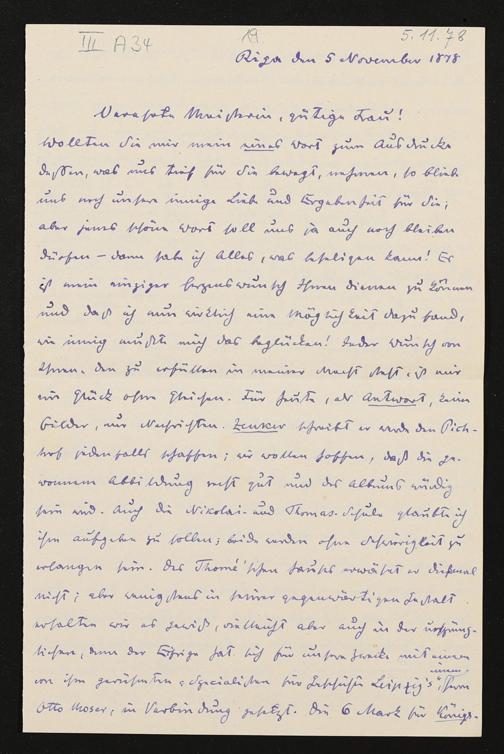 III A34
19
5.11.78
Riga den 5 November 1878
Verehrte Meisterin, gütige Frau!
Wollten Sie mir mein eines Wort zum Ausdrucke
dessen, was uns tief für Sie bewegt, nehmen, so bliebe
uns noch unsere innige Liebe und Ergebenheit für Sie;
aber jenes schöne Wort soll uns ja auch noch bleiben
dürfen – dann habe ich Alles, was beseligen kann! Er
ist mein einziger Herzenswunsch Ihnen dienen zu können
und daß ich nun wirklich eine Möglichkeit dazu fand,
wie innig mußte mich das beglücken! Jeder Wunsch von
Ihnen, den zu erfüllen in meiner Macht steht, ist mir
ein Glück ohne Gleichen. Für heute, als Antwort, keine
Bilder, nur Nachrichten. Zenker schreibt er werde den Pich-
hof jedenfalls schaffen; wir wollen hoffen, daß die ge-
wonnene Abbildung recht gut und des Albums würdig
sein wird. Auch die Nikolai- und Thomas-Schule glaubte ich
ihm aufgeben zu sollen; beide werden ohne Schwierigkeit zu
erlangen sein. Des Thomé'schen Hauses erwähnt er diesmal
nicht; aber wenigstens in seiner gegenwärtigen Gestalt
erhalten wir es gewiß, vielleicht aber auch in der ursprüng-
lichen, denn der Eifrige hat sich für unsere Zwecke mit einem
von ihm gerühmten "Specialisten für Geschichte Leipzig's", Herrn
Otto Moser, in Verbindung gesetzt. Die 6 Mark für Königs-